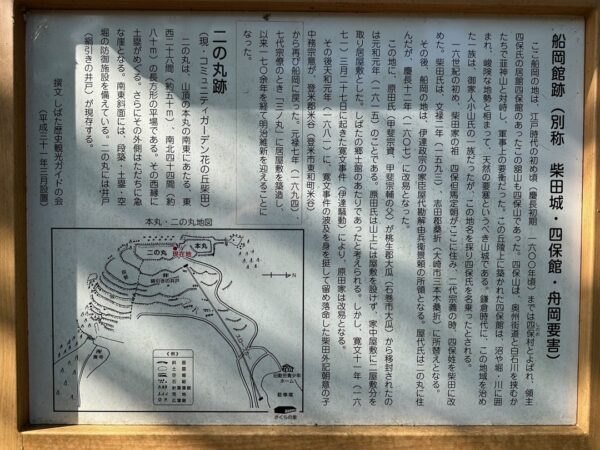 船岡館跡（別称　柴田城・四保館・舟岡要害）
ここ船岡の地は、江戸時代の初め頃（慶長初期　一六〇〇年頃）までは四保村とよばれ、領主
四保氏の居館四保館のあったこの舘山も四保山であった。四保山は、奥州街道と白石川を挟むか
たちで韮神山と対峙し、軍事上の要衝だった。この丘陵上に築かれた四保館は、沼や堀・川に囲
まれ、峻険な地勢と相まって、天然の要塞というべき山城である。鎌倉時代に、この地域を治め
た一族は、御家人小山氏の一族だったが、この地名を採り四保氏を名乗ったとされる。
一六世紀の初め、柴田家の祖　四保但馬定朝がここに住み、二代宗義の時、四保姓を柴田に改
めた。柴田氏は、文禄二年（一五九三）、志田郡桑折（大崎市三本木桑折）に所替えとなる。
その後、船岡の地は、伊達政宗の家臣屋代勘解由兵衛景頼の所領となる。屋代氏は二の丸に住
んだが、慶長十二年（一六〇七）に改易となった。
この地に、原田氏（甲斐宗資、甲斐宗輔の父）が桃生郡大瓜（石巻市大瓜）から移封されたの
は元和元年（一六一五）のことである。原田氏は山上には屋敷を設けず、家中屋敷に二屋敷分を
取り居屋敷とした。しばたの郷土館のあたりであったと考えられる。しかし、寛文十一年（一六
七一）三月二十七日に起きた寛文事件（伊達騒動）により、原田家は改易となる。
その後天和元年（一六八一）に、寛文事件の波及を身を挺して留め落命した柴田外記朝意の子
中務宗意が、登米郡米谷（登米市東和町米谷）
から再び船岡に戻った。元禄七年（一六九四）、
七代宗僚のとき「三ノ丸」に居屋敷を築造し、
以来一七〇余年を経て明治維新を迎えることに
なった。
二の丸跡
（現・コミュニティガーデン花の丘柴田）
二の丸は、山頂の本丸の南東にあたる、東
西二十六間（約五十ｍ）、南北四十四間（約
八十ｍ）の長方形の平場である。その西縁に
土塁がめぐる。さらにその外側はただちに急
な崖となる。南東斜面には、段築・土塁・空
堀の防御施設を備えている。二の丸には井戸
（鞘引きの井戸）が現存する。
撰文　しばた歴史観光ガイドの会
（平成三十一年三月設置）
本丸・二の丸地図
本丸
二の丸
現在地
鞘引きの井戸
N
スロープカー
駐車場
さくらの里
（例）